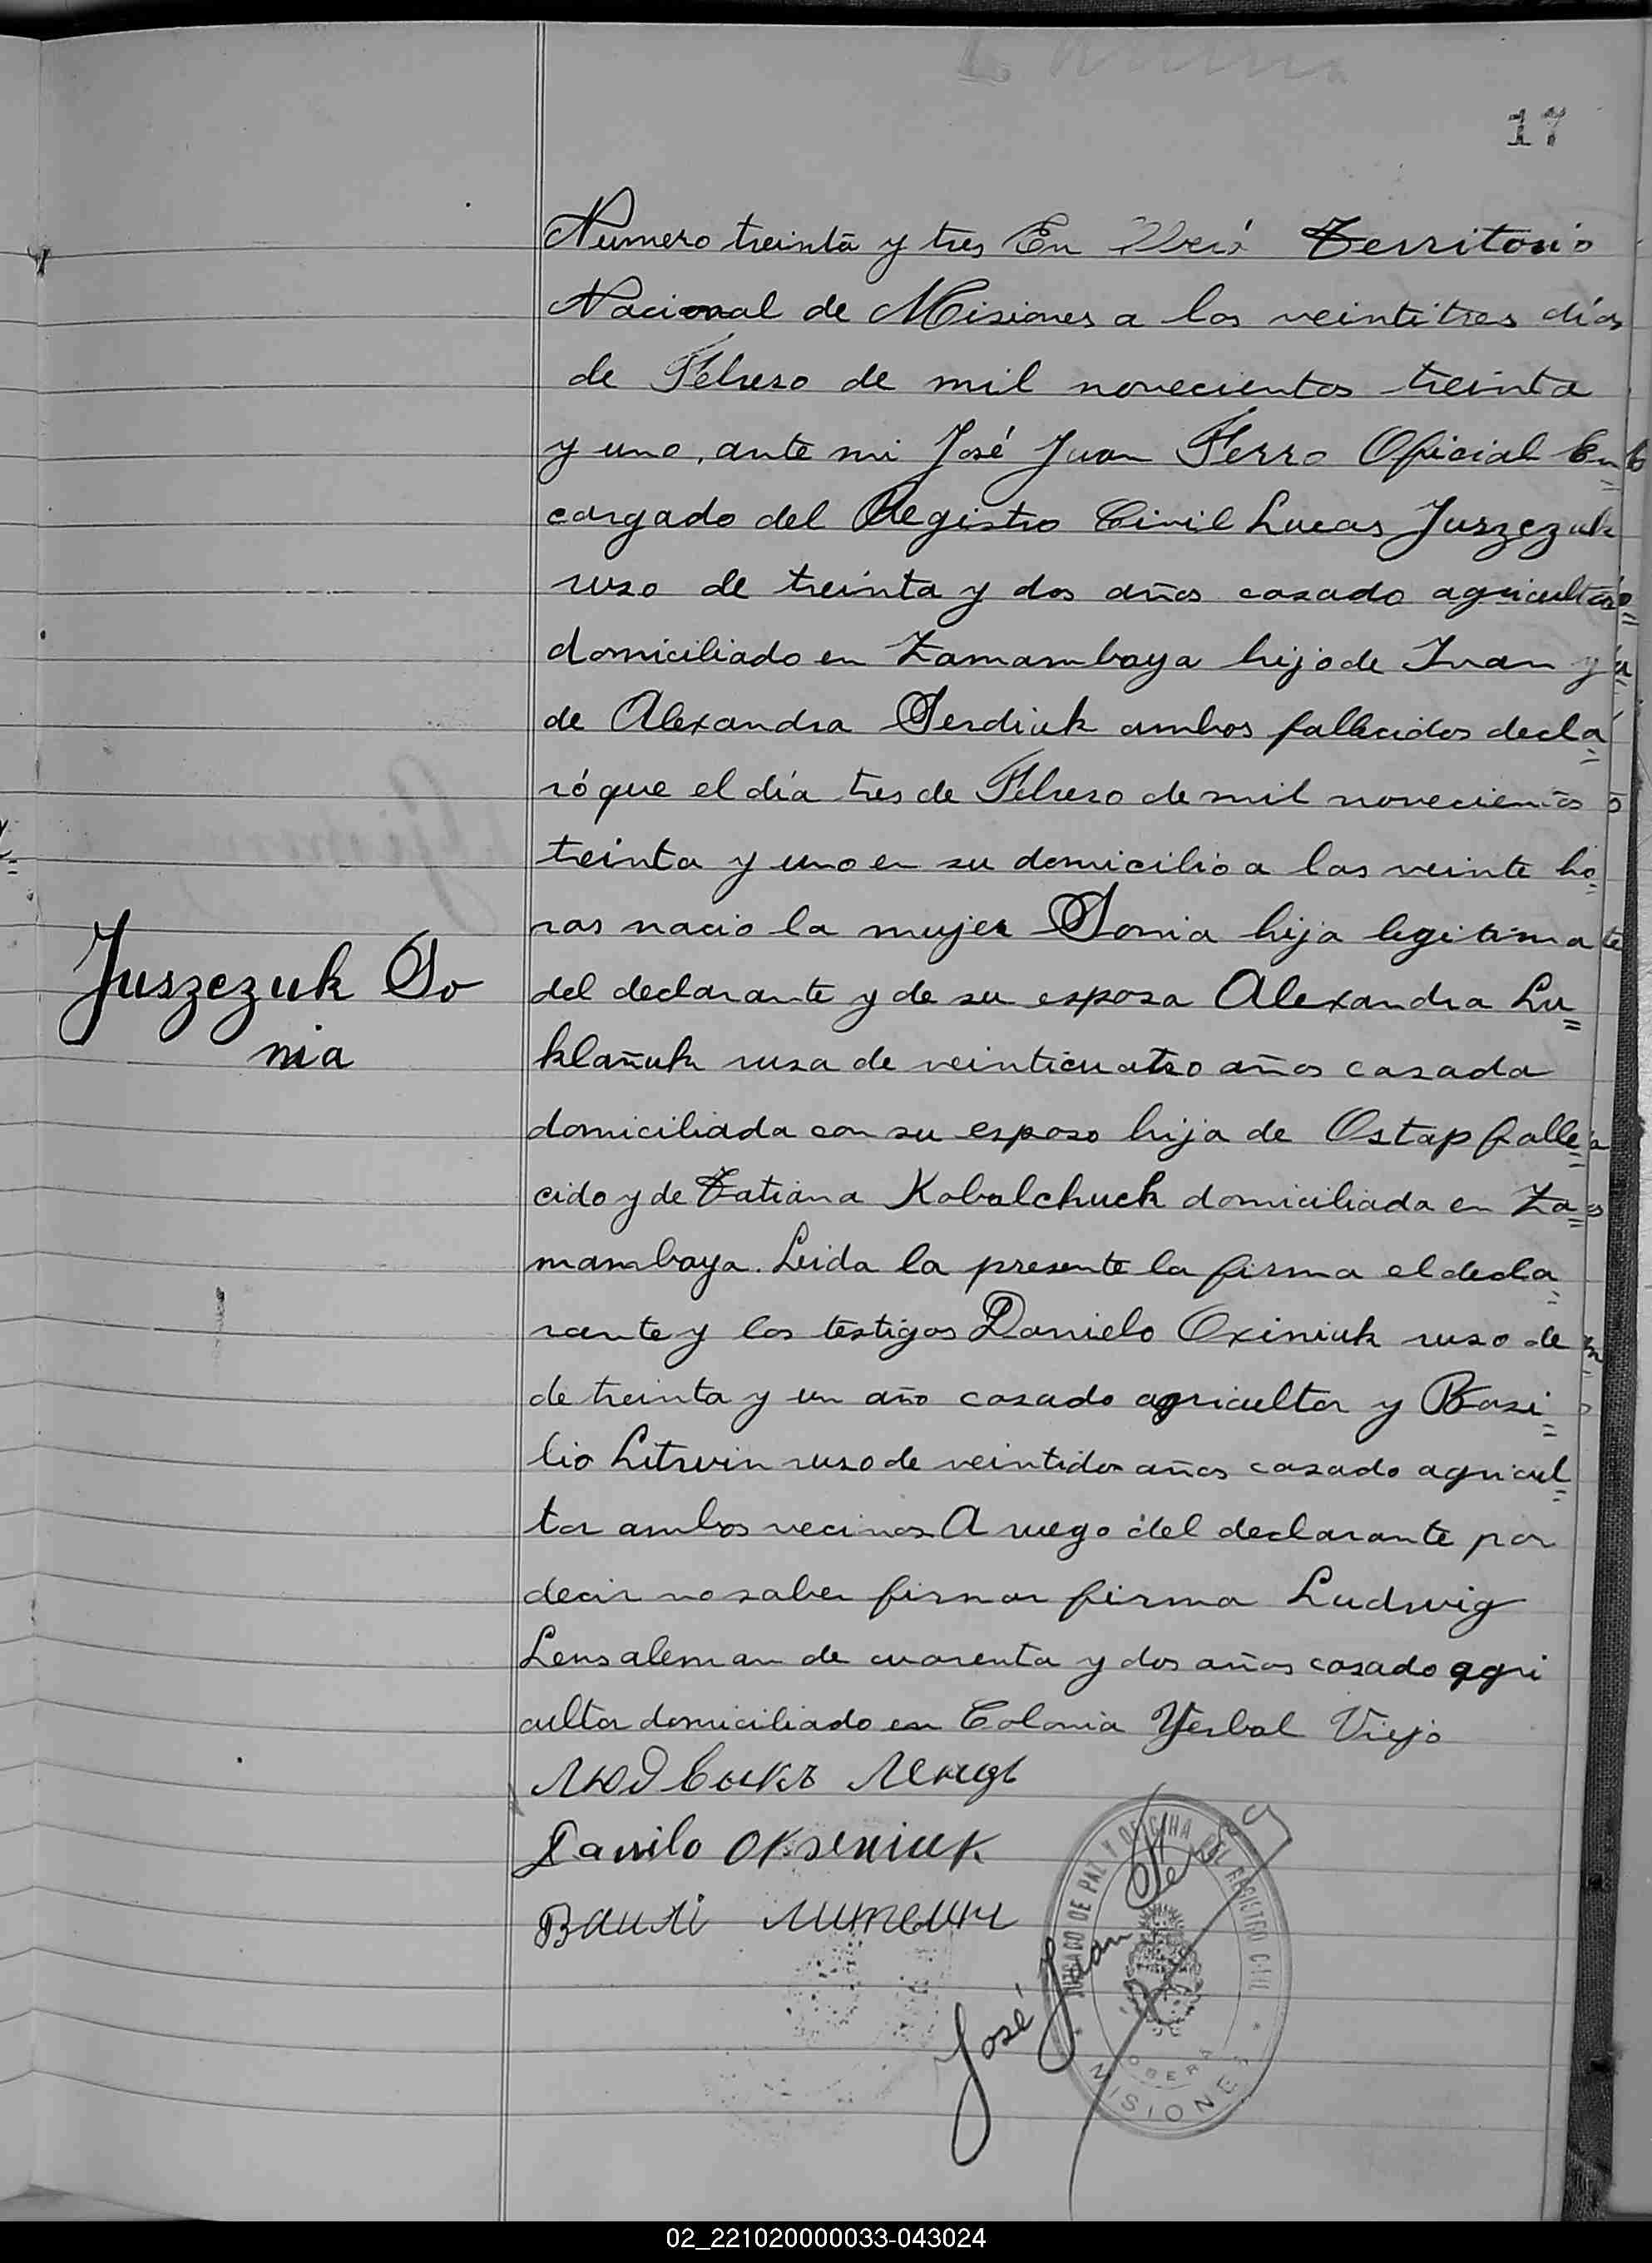 17
Numero treinta y tres En Oberá Territorio
Nacional de Misiones a los veintitres días
de Febrero de mil novecientos treinta
y uno, ante mi José Juan Ferro Oficial En=
cargado del Registro Civil Lucas Juszczuk
ruso de treinta y dos años casado agricultor
domiciliado en Zamambaya hijo de Ivan y
de Alexandra Serdiuk ambos fallecidos decla=
ró que el día tres de Febrero de mil novecientos
treinta y uno en su domicilio a las veinte ho=
ras nacio la mujer Sonia hija legitima
Juszczuk So
nia
del declarante y de su esposa Alexandra Lu=
klañuk rusa de veinticuatro años casada
domiciliada con su esposo hija de Ostap falle=
cido y de Tatiana Kobalchuck domiciliada en Za=
mambaya. Leida la presente la firma el decla=
rante y los testigos Danielo Oxiniuk ruso de
de treinta y un año casado agricultor y Basi=
lio Litwin ruso de veintidos años casado agricul=
tor ambos vecinos A ruego del declarante por
decir no saber firmar firma Ludwig
Lens aleman de cuarenta y dos años casado agri
cultor domiciliado en Colonia Yerbal Viejo
Людвикъ Ленцъ
Danilo Okseniuk
José Juan Ferro
JUZGADO DE PAZ Y OFICINA DEL REGISTRO CIVIL
OBERA
MISIONES
02_221020000033-043024